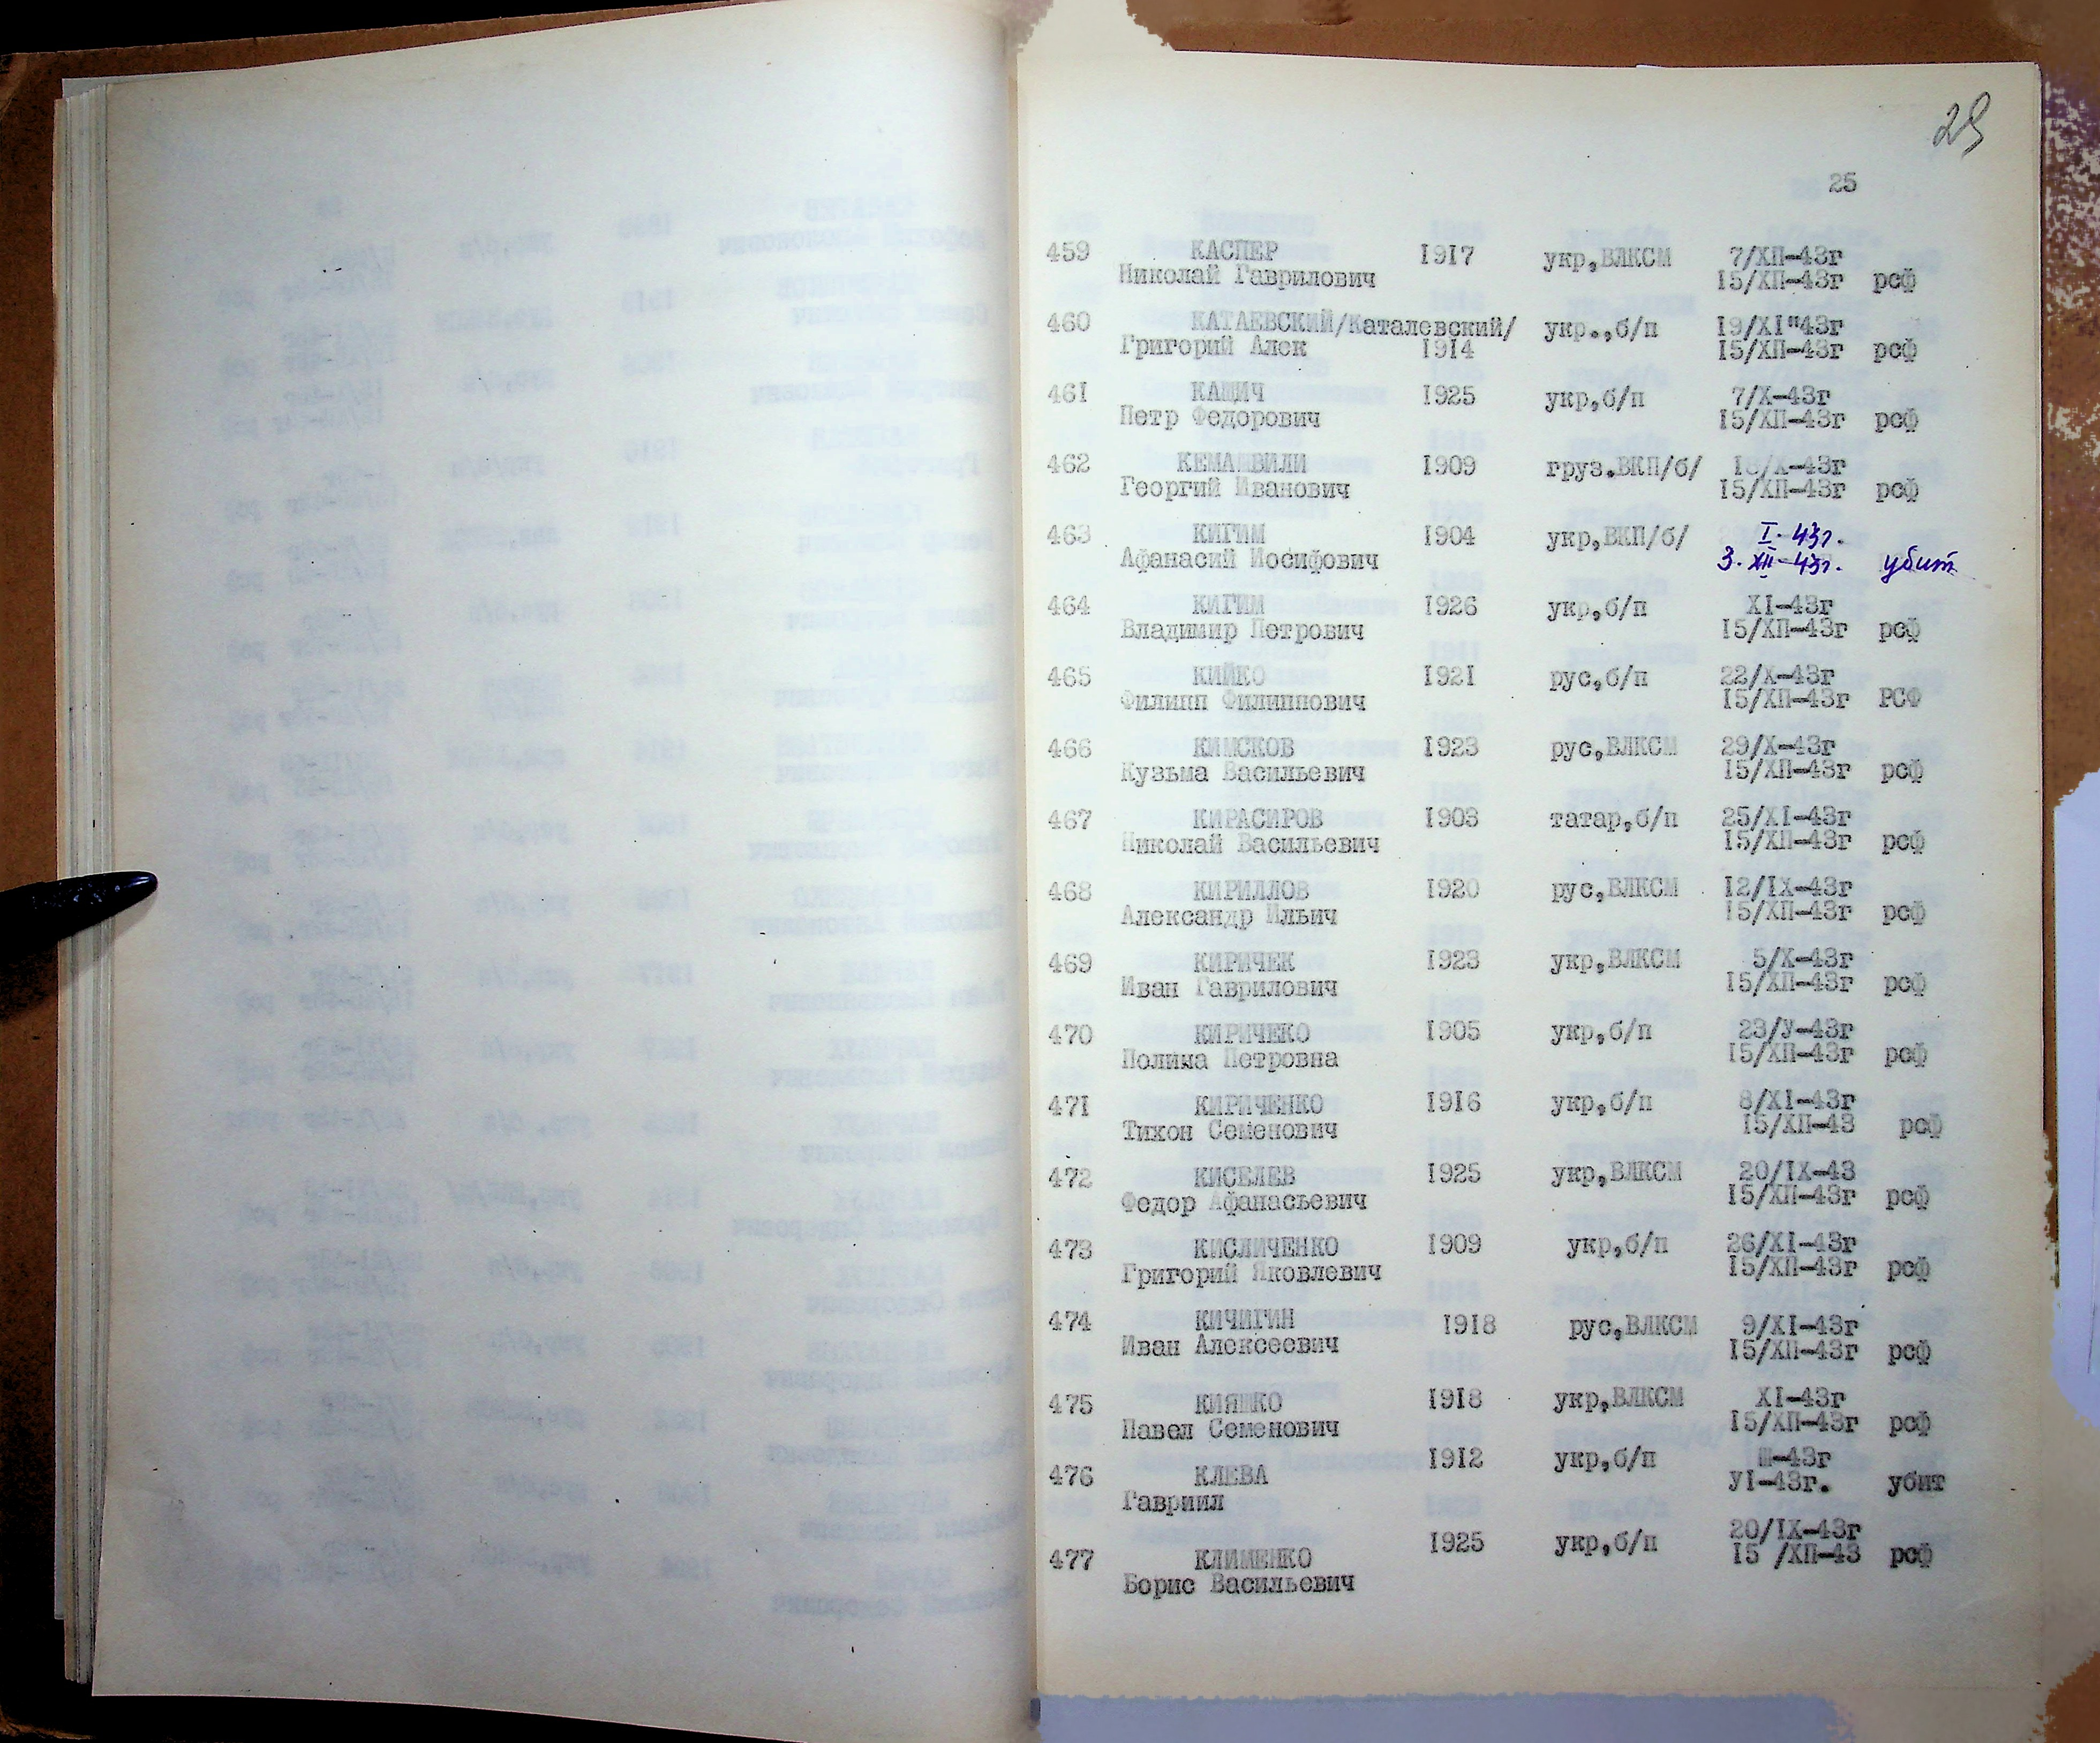 29
25
459 КАСПЕР 1917 укр,ВЛКСМ 7/ХП-43г
Николай Гаврилович 15/ХП-43г рсф
460 КАТАЕВСКИЙ/Каталевский/ укр.,б/п 19/XI"43г
Григорий Алек 1914 15/ХП-43г рсф
461 КАЩИЧ 1925 укр,б/п 7/Х-43г
Петр Федорович 15/ХП-43г рсф
462 КЕМАШВИЛИ 1909 груз.ВКП/б/ 18/Х-43г
Георгий Иванович 15/ХП-43г рсф
463 КИГИМ 1904 укр,ВКП/б/ I. 43г.
Афанасий Иосифович 3. XII-43г. убит
464 КИГИМ 1926 укр,б/п XI-43г
Владимир Петрович 15/ХП-43г рсф
465 КИЙКО 1921 рус,б/п 22/Х-43г
Филипп Филиппович 15/ХП-43г РСФ
466 КИМСКОВ 1923 рус,ВЛКСМ 29/Х-43г
Кузьма Васильевич 15/ХП-43г рсф
467 КИРАСИРОВ 1903 татар,б/п 25/XI-43г
Николай Васильевич 15/ХП-43г рсф
468 КИРИЛЛОВ 1920 рус,ВЛКСМ 12/IX-43г
Александр Ильич 15/ХП-43г рсф
469 КИРИЧЕК 1923 укр,ВЛКСМ 5/Х-43г
Иван Гаврилович 15/ХП-43г рсф
470 КИРИЧЕКО 1905 укр,б/п 23/У-43г
Полина Петровна 15/ХП-43г рсф
471 КИРИЧЕНКО 1916 укр,б/п 8/XI-43г
Тихон Семенович 15/ХП-43 рсф
472 КИСЕЛЕВ 1925 укр,ВЛКСМ 20/IX-43
Федор Афанасьевич 15/ХП-43г рсф
473 КИСЛИЧЕНКО 1909 укр,б/п 26/XI-43г
Григорий Яковлевич 15/ХП-43г рсф
474 КИЧИГИН 1918 рус,ВЛКСМ 9/XI-43г
Иван Алексеевич 15/ХП-43г рсф
475 КИЯШКО 1918 укр,ВЛКСМ XI-43г
Павел Семенович 15/ХП-43г рсф
476 КЛЕВА 1912 укр,б/п Ш-43г
Гавриил УI-43г. убит
477 КЛИМЕНКО 1925 укр,б/п 20/IX-43г
Борис Васильевич 15 /ХП-43 рсф